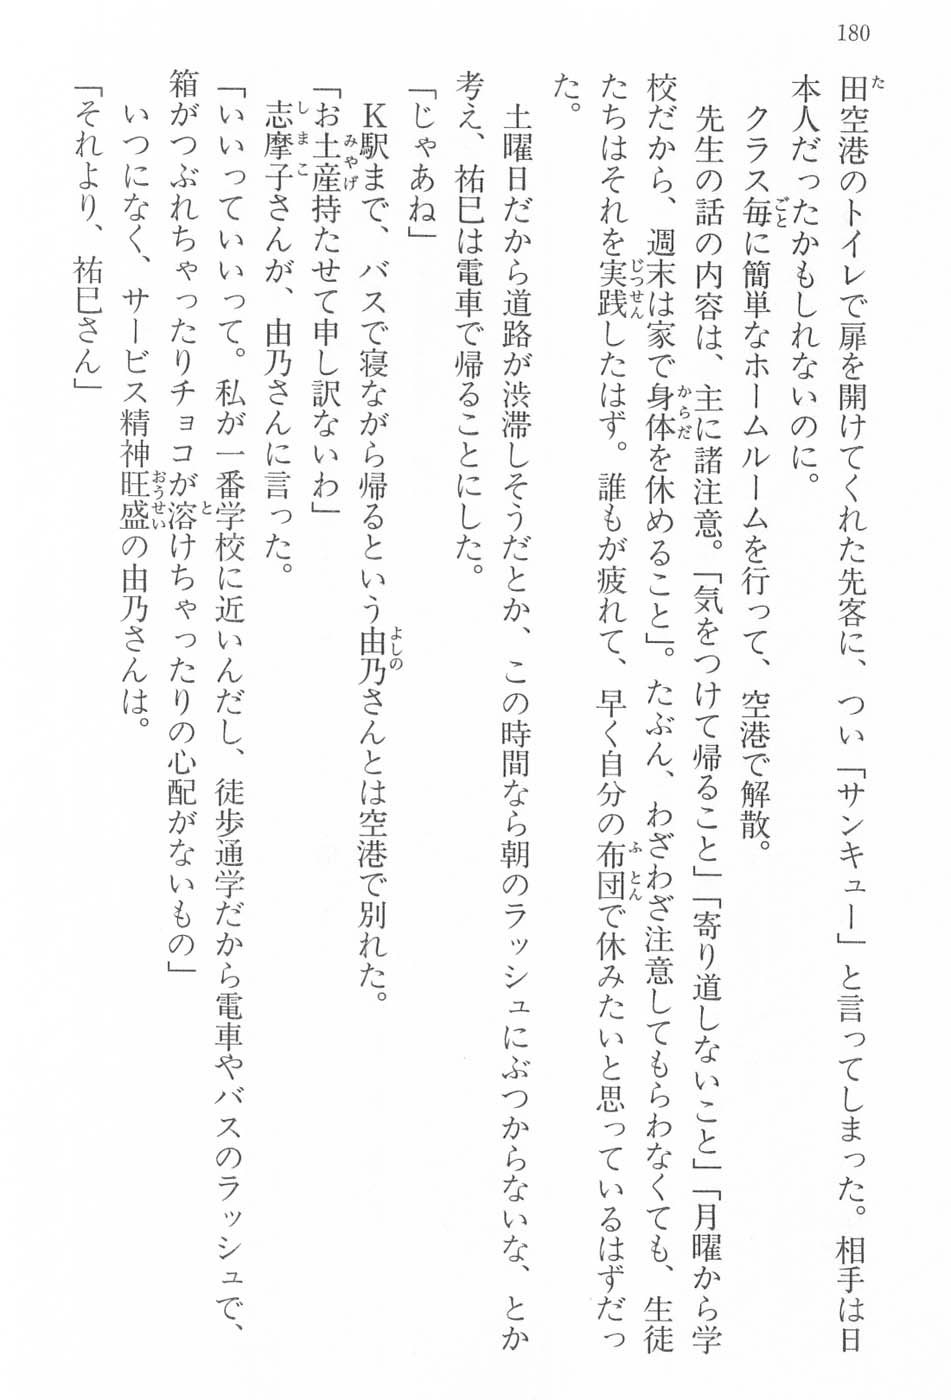 180
田空港のトイレで扉を開けてくれた先客に、つい「サンキュー」と言ってしまった。相手は日
本人だったかもしれないのに。
クラス毎に簡単なホームルームを行って、空港で解散。
先生の話の内容は、主に諸注意。「気をつけて帰ること」「寄り道しないこと」「月曜から学
校だから、週末は家で身体を休めること」。たぶん、わざわざ注意してもらわなくても、生徒
たちはそれを実践したはず。誰もが疲れて、早く自分の布団で休みたいと思っているはずだっ
た。
土曜日だから道路が渋滞しそうだとか、この時間なら朝のラッシュにぶつからないな、とか
考え、祐巳は電車で帰ることにした。
「じゃあね」
K駅まで、バスで寝ながら帰るという由乃さんとは空港で別れた。
「お土産持たせて申し訳ないわ」
志摩子さんが、由乃さんに言った。
「いいっていいって。私が一番学校に近いんだし、徒歩通学だから電車やバスのラッシュで、
箱がつぶれちゃったりチョコが溶けちゃったりの心配がないもの」
いつになく、サービス精神旺盛の由乃さんは。
「それより、祐巳さん」